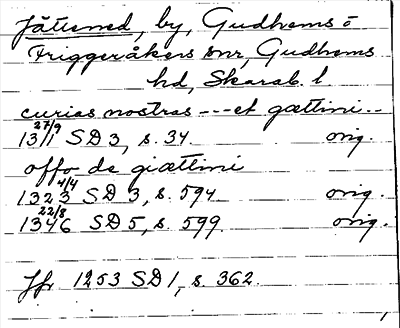 Jättened, by, Gudhems o
Friggeråkers snr, Gudhems
hd, Skarab. l
curias nostras --- et gættini --
27/9
1311 SD 3, s. 34. orig.
offo de giættini
4/4
1323 SD 3, s. 594 orig.
22/8
1346 SD 5, s. 599 orig.
Jfr 1253 SD 1, s. 362.